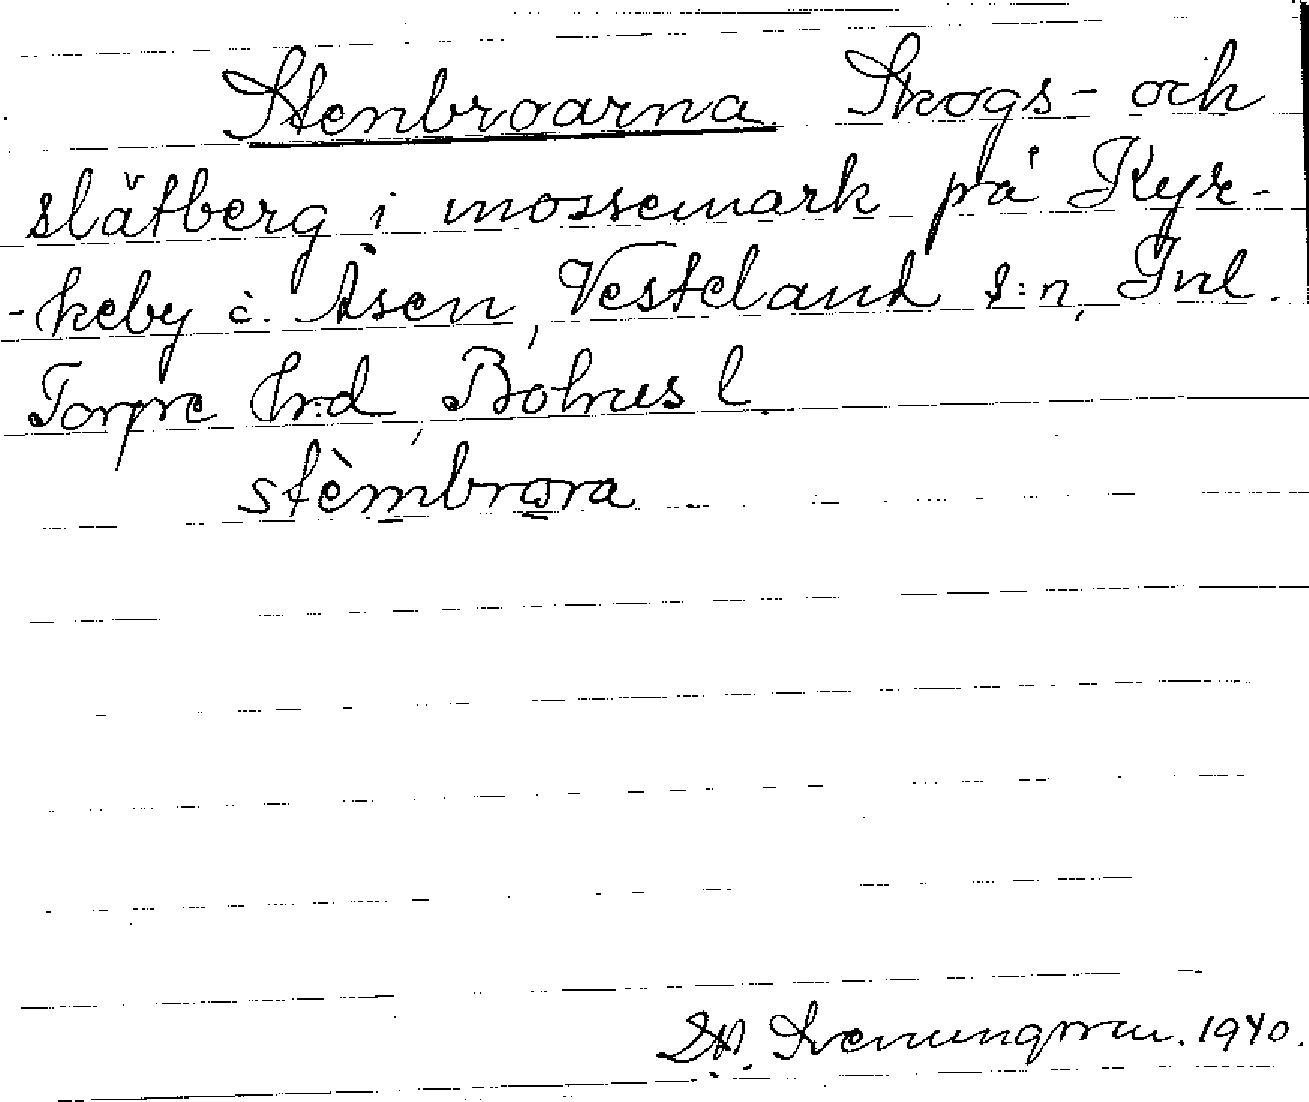 Stenbroarna. Skogs- och
slätberg i mossemark på Kyr-
-keby i. Åsen, Vesteland s:n, Inl.
Torpe hrd, Bohus l.
stèmbrora
Svenungsson. 1940.